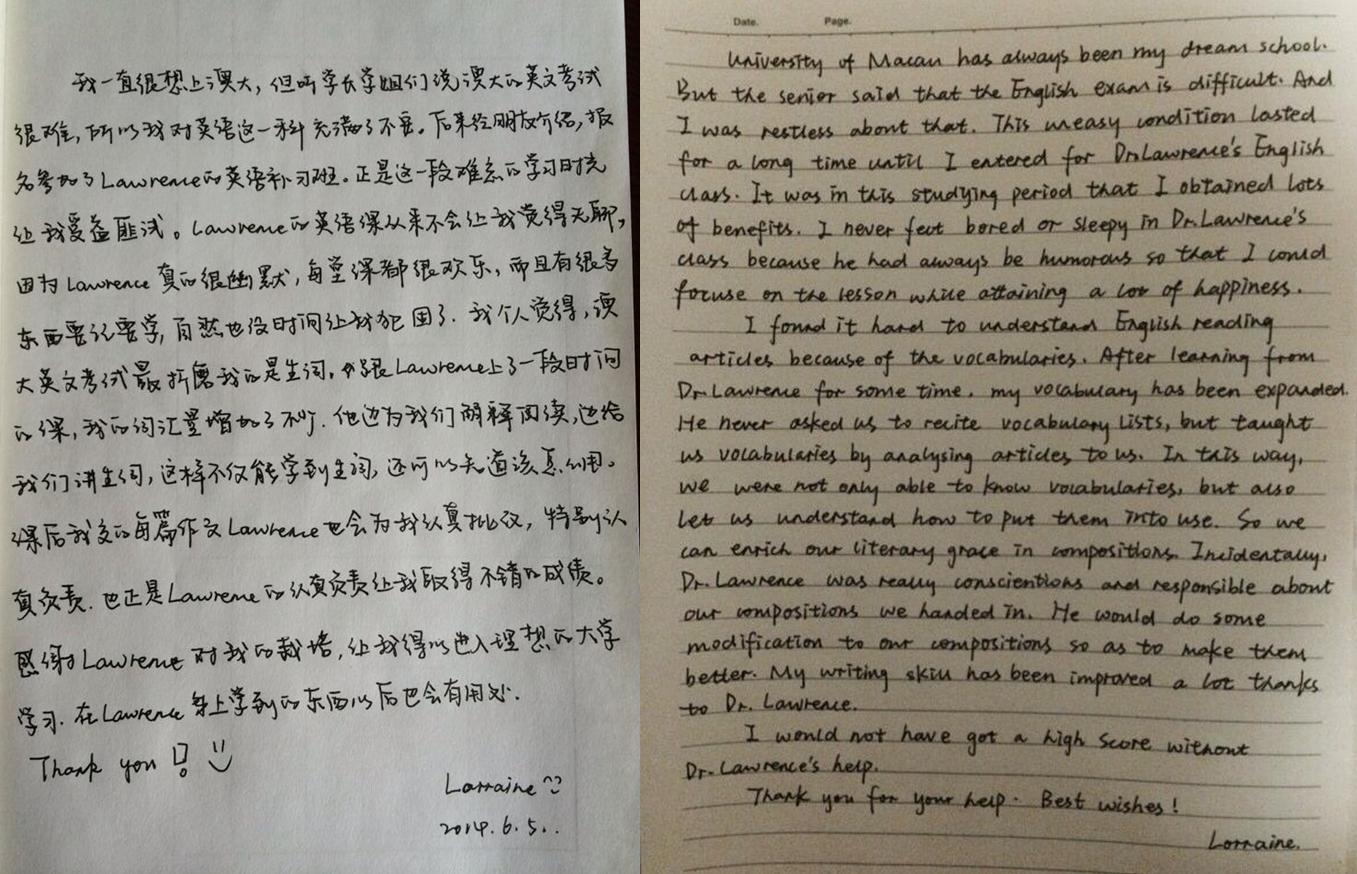 我一直很想上澳大，但听学长学姐们说澳大的英文考试
很难，所以我对英语这一科充满了不安。后来经朋友介绍，报
名参加了Lawrence的英语补习班。正是这一段难忘的学习时光
让我受益匪浅。Lawrence的英语课从来不会让我觉得无聊，
因为Lawrence真的很幽默，每堂课都很欢乐，而且有很多
东西要记要学，自然也没时间让我犯困了。我个人觉得，澳
大英文考试最折磨我的是生词。跟Lawrence上了一段时间
的课，我的词汇量增加了不少。他边为我们解释阅读，边给
我们讲生词，这样不仅能学到生词，还可以知道该怎么用。
课后我交的每篇作文Lawrence也会为我认真批改，特别认
真负责。也正是Lawrence的认真负责让我取得不错的成绩。
感谢Lawrence对我的栽培，让我得以进入理想的大学
学习。在Lawrence身上学到的东西以后也会有用处。
Thank you !
Lorraine
2014.6.5..
Date. Page.
University of Macau has always been my dream school.
But the senior said that the English exam is difficult. And
I was restless about that. This uneasy condition lasted
for a long time until I entered for Dr.Lawrence's English
class. It was in this studying period that I obtained lots
of benefits. I never felt bored or sleepy in Dr.Lawrence's
class because he had always be humorous so that I could
focuse on the lesson while attaining a lot of happiness.
I found it hard to understand English reading
articles because of the vocabularies. After learning from
Dr.Lawrence for some time, my vocabulary has been expanded.
He never asked us to recite vocabulary lists, but taught
us volabularies by analysing articles to us. In this way,
we were not only able to know vocabularies, but also
let us understand how to put them into use. So we
can enrich our literary grace in compositions. Incidentally,
Dr.Lawrence was really conscientious and responsible about
our compositions we handed in. He would do some
modification to our compositions so as to make them
better. My writing skill has been improved a lot thanks
to Dr. Lawrence.
I would not have got a high score without
Dr.Lawrence's help.
Thank you for your help. Best wishes!
Lorraine.